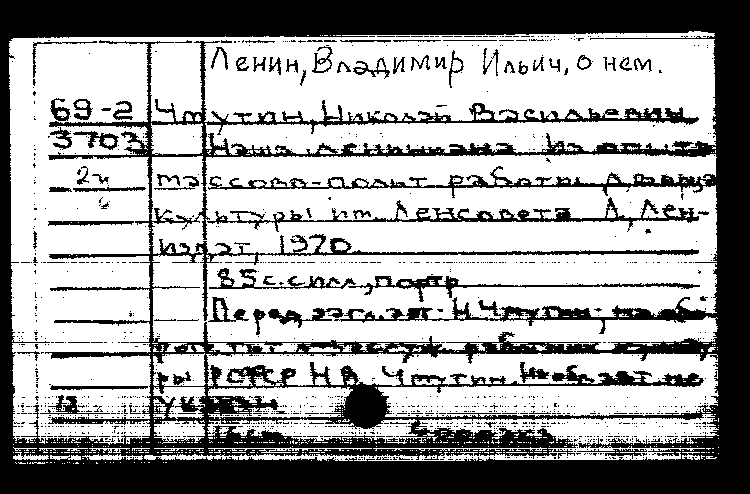 Ленин, Владимир Ильич, о нем.
69-2 Чмутин, Николай Васильевич
3703 Наша лениниана. Из опыта
2и массово-полит работы Дворца
культуры им. Ленсовета Л., Лен-
издат, 1970.
85 с. с илл., портр
Перед загл. авт: Н. Чмутин; на об
тит л.: заслуж. работник культу
ры РСФСР Н В. Чмутин. Инобл. авт. не
18 указан
16 см.